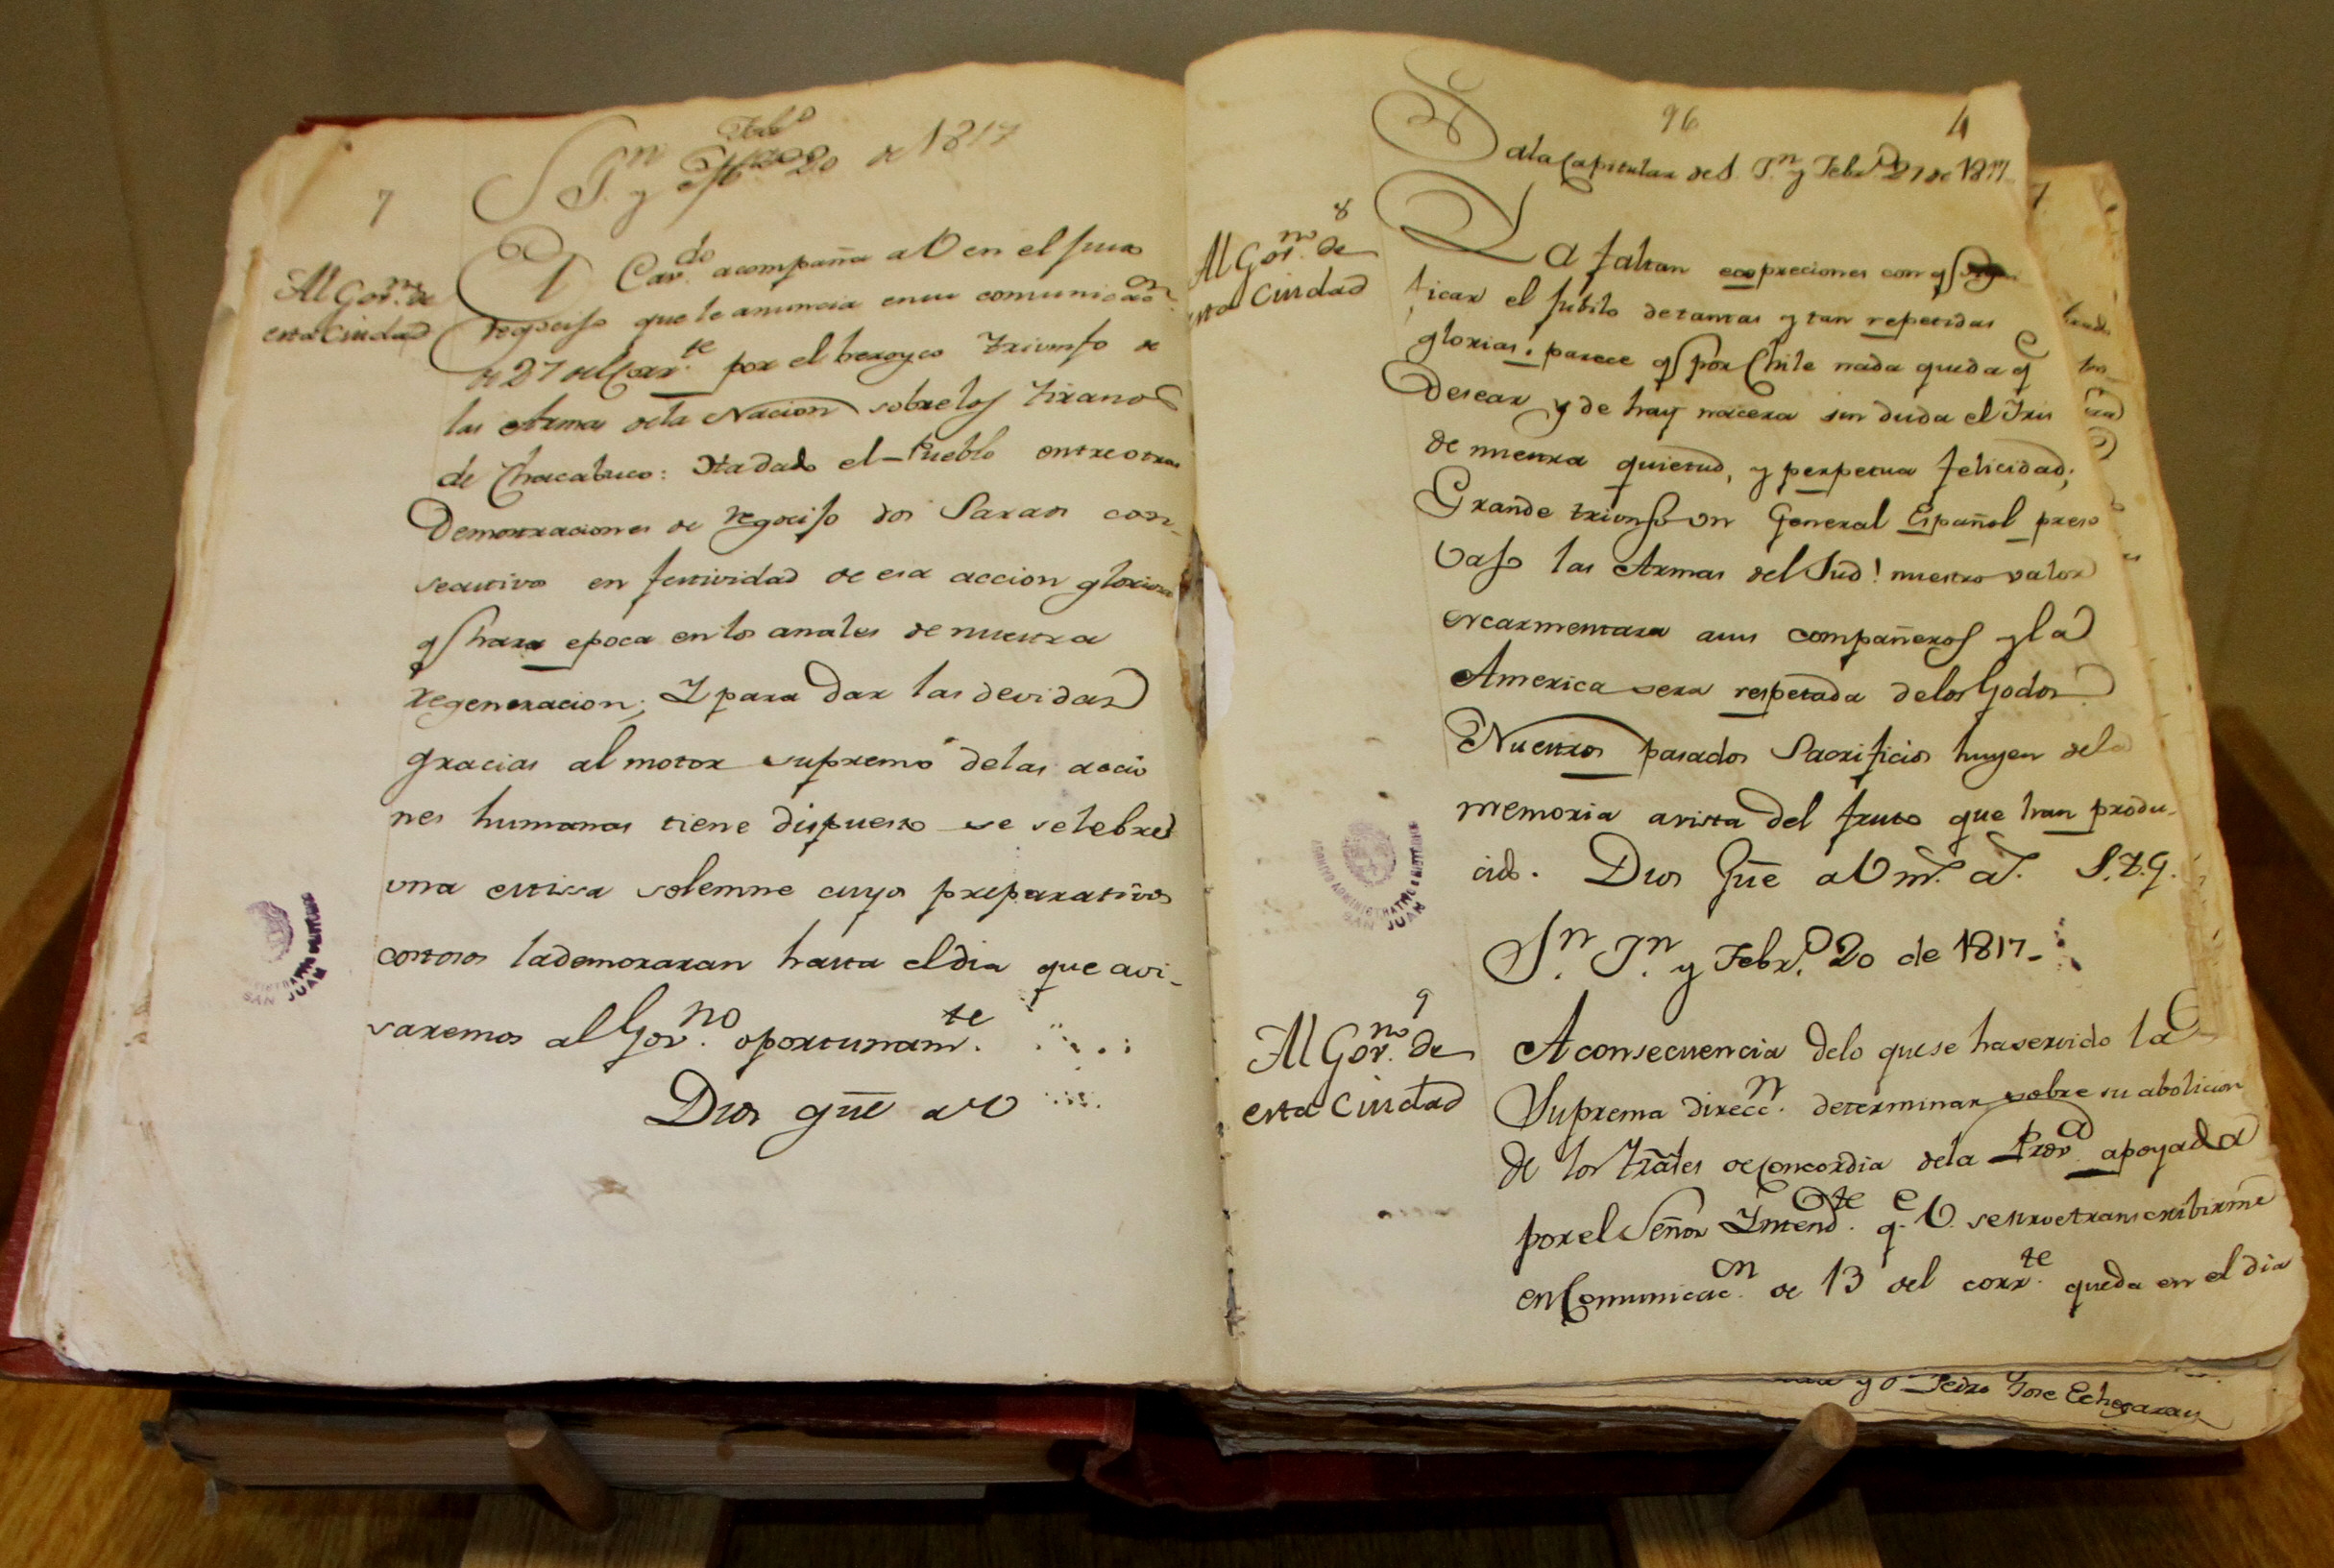 7
S. Jn. y Febo. 20 de 1817
Al Govno. de
esta Ciudad
El Cavdo. acompaña a V en el justo
regocijo que le anuncia en su comunicacon.
de 27 del Corrte. por el heroyco triunfo de
las Armas dela Nacion sobrelos tiranos
de Chacabuco: Ha dado el Pueblo entre otras
Demostraciones de regocijo dos Saraos con-
secutivos en festividad de esa accion gloriosa
qe hara epoca en los anales de nuestra
regeneracion; Y para dar las devidas
gracias al motor supremo delas accio
nes humanas tiene dispuesto se selebre
una Missa solemne cuyos preparativos
costosos lademoraran hasta eldia que avi-
saremos al Govno. oportunamte.
Dios gūe a V
96 4
Sala Capitular de S. Jn. y Febro. 21 de 1817
8
Al Govno. de
esta Ciudad
Ya faltan expreciones con qe
ticar el jubilo detantas y tan repetidas
glorias. parece qe por Chile nada queda qe
Desear y de hay nacera sin duda el Iris
de nuestra quietud, y perpetua felicidad;
Grande triunfo un General Español preso
Vajo las Armas del Sud! nuestro valor
escarmentara asus compañeros y la
America sera respetada delos Godos
Nuestros pasados Sacrificios huyen dela
memoria avista del fruto que han produ-
cido. Dios Gūe a V ms. as. S.t.g.
Sn. Jn. y Febro. 20 de 1817-
9
Al Govno. de
esta Ciudad
A consecuencia delo quese haservido la
Suprema direccn. determinar sobre su abolicion
de los trāles de Concordia dela Prova. apoyada
por el Señor Intendte. qe. V. sesirve transcribirme
en Comunicaccn. de 13 del corrte. queda en el dia
yo Pedro Jose Echegaray
ARCHIVO ADMINISTRATIVO E HISTORICO
SAN JUAN
SAN JUAN